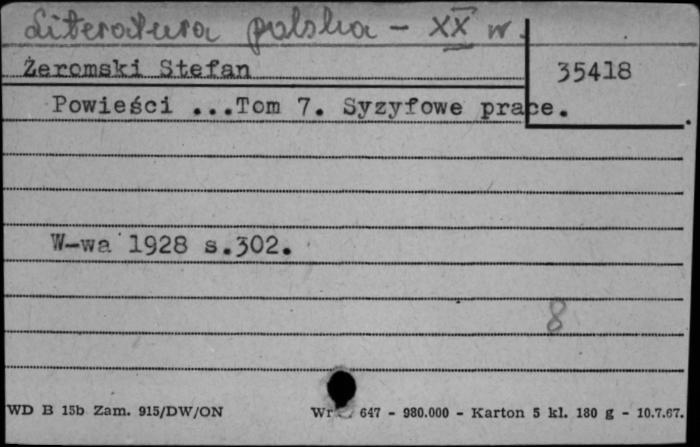 Literatura polska - XX w.
Żeromski Stefan
35418
Powieści ...Tom 7. Syzyfowe prace.
W-wa 1928 s.302.
8
WD B 15b Zam. 915/DW/ON Wr 647 - 980.000 - Karton 5 kl. 180 g - 10.7.67.